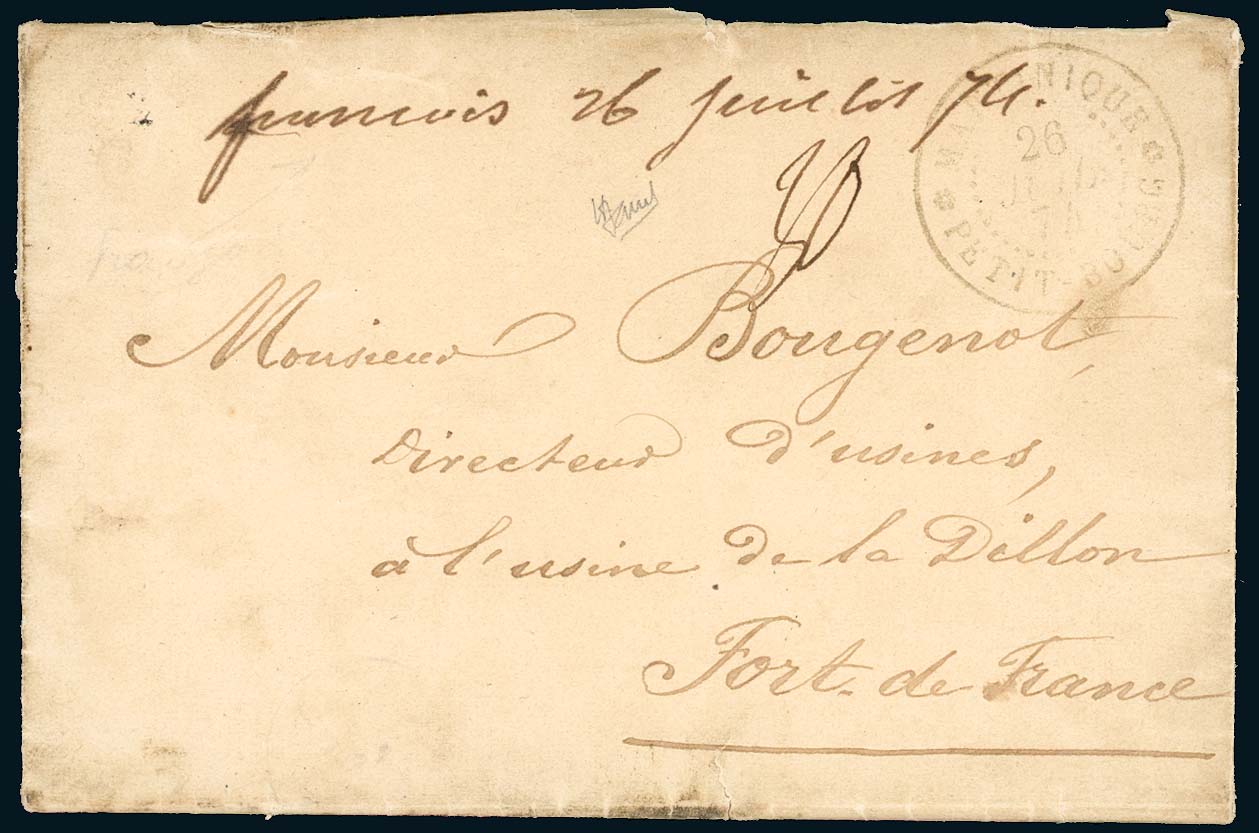 francois 26 juillet 74.
MARTINIQUE
26
JUIL
74
PETIT-BOURG
Monsieur Bougenot,
Directeur d'usines,
à l'usine de la Dillon
Fort-de-France